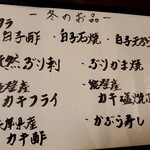 ー冬のお品ー
タラ
白子酢 ・白子石焼 ・白子天ぷら
天然ぶり刺 ・ぶりかま焼
能登産 カキフライ
・能登産 カキ塩焼
兵庫県産 カキ酢
・かぶら寿し